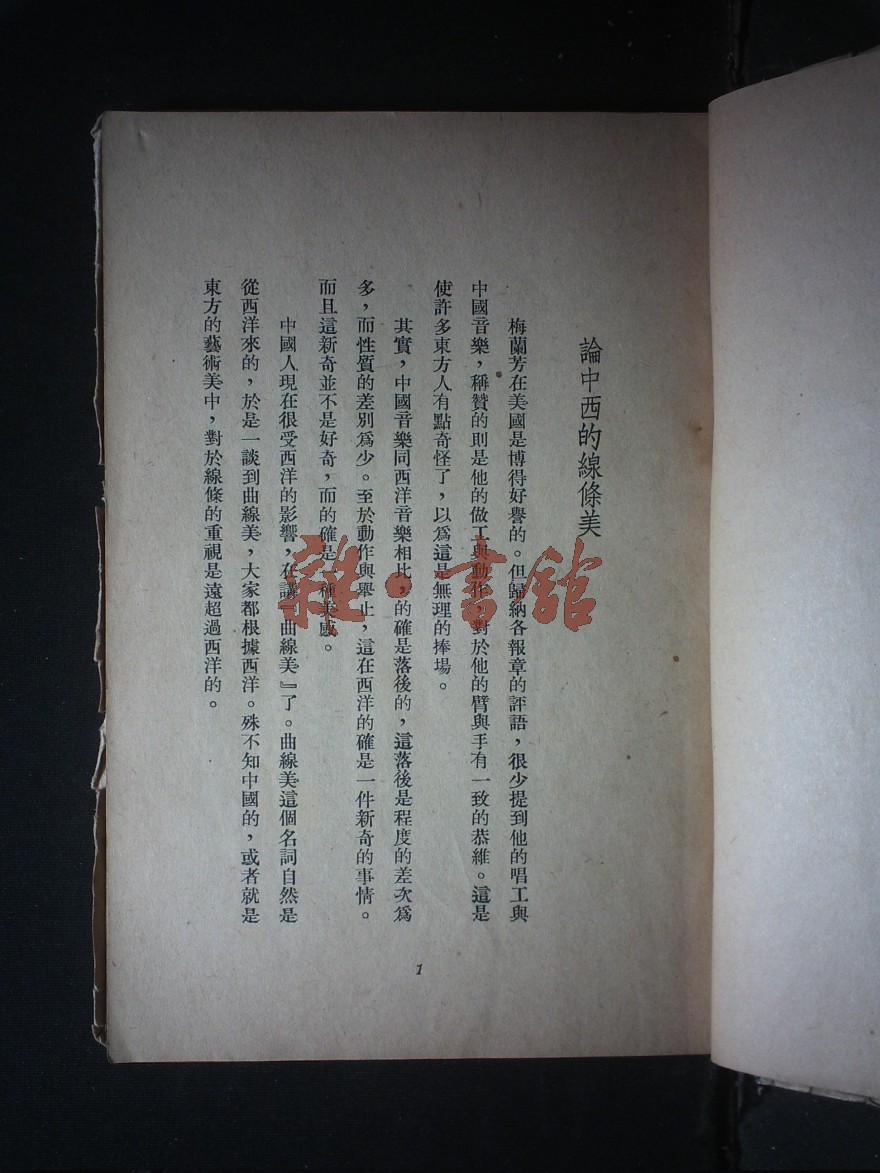 論中西的線條美
梅蘭芳在美國是博得好譽的。但歸納各報章的評語，很少提到他的唱工與
中國音樂，稱贊的則是他的做工與動作，對於他的臂與手有一致的恭維。這是
使許多東方人有點奇怪了，以爲這是無理的捧場。
其實，中國音樂同西洋音樂相比，的確是落後的，這落後是程度的差次爲
多，而性質的差別爲少。至於動作與舉止，這在西洋的確是一件新奇的事情。
而且這新奇並不是好奇，而的確是一種美感。
中國人現在很受西洋的影響，在講『曲線美』了。曲線美這個名詞自然是
從西洋來的，於是一談到曲線美，大家都根據西洋。殊不知中國的，或者就是
東方的藝術美中，對於線條的重視是遠超過西洋的。
1
雜·書館